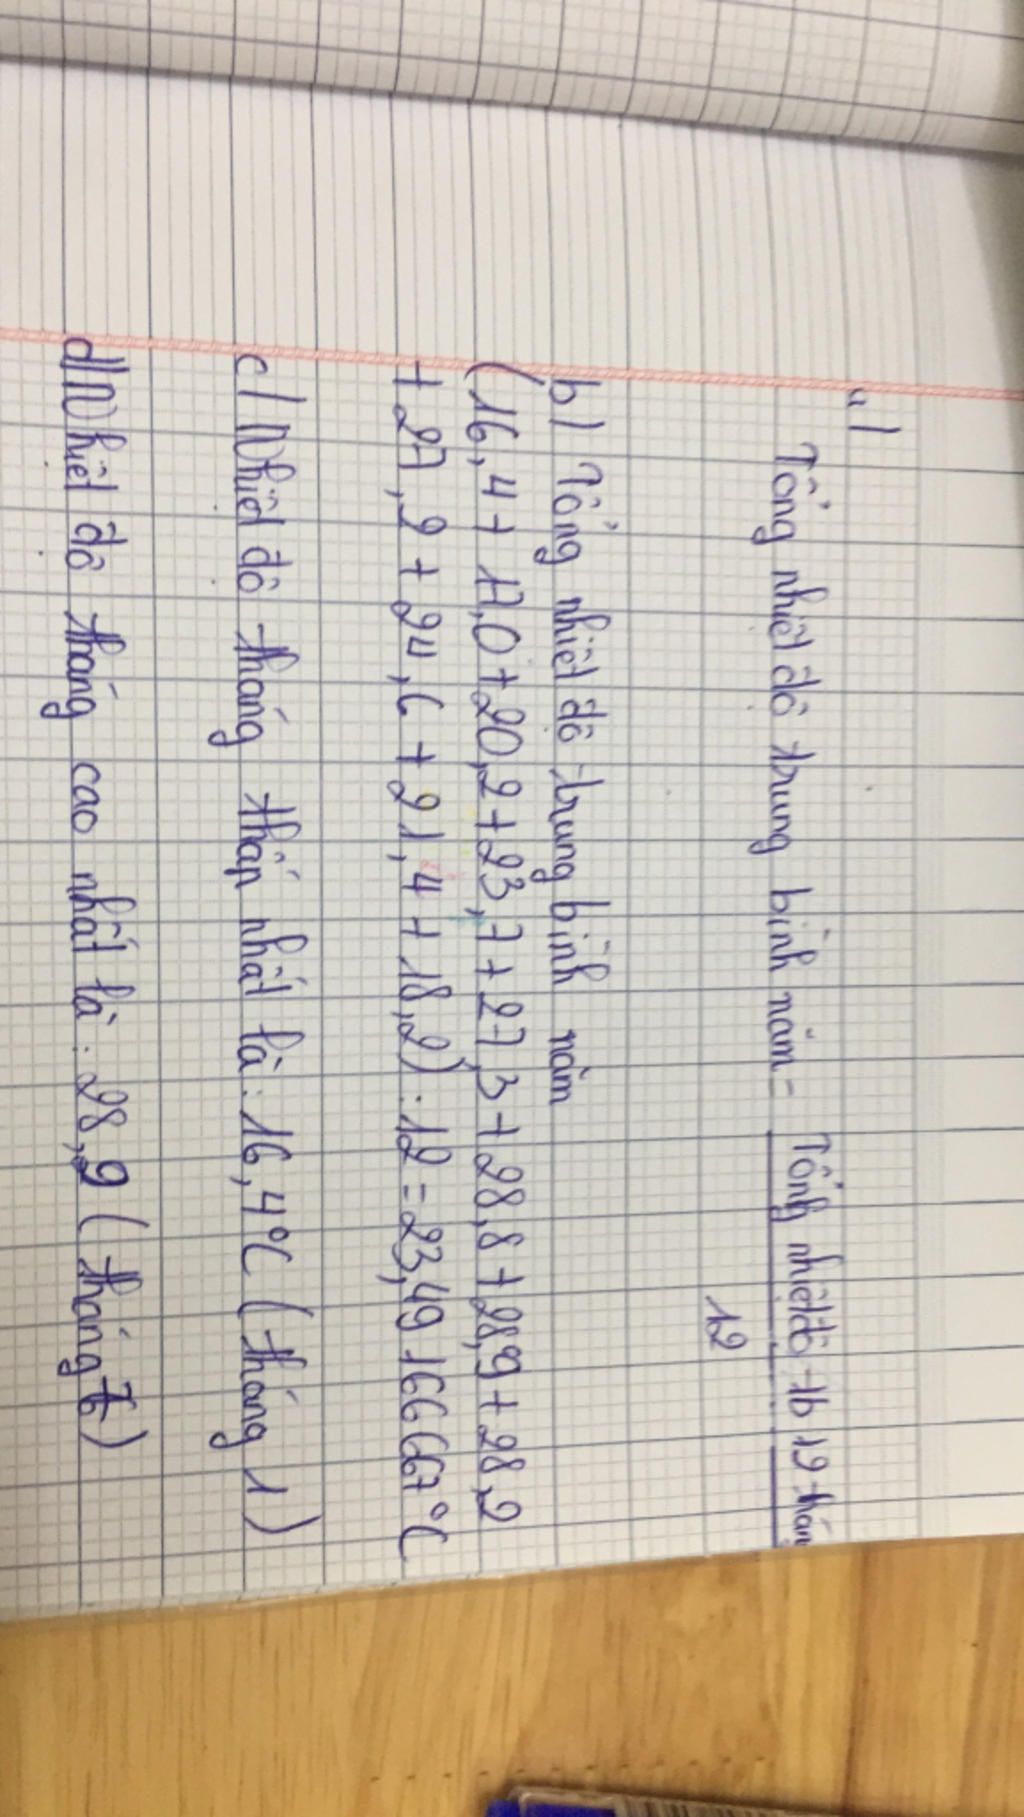 a/
Tổng nhiệt độ trung bình năm = Tổng nhiệt độ tb 12 thán
12
b/ Tổng nhiệt độ trung bình năm
(16,4 + 17,0 + 20,2 + 23,7 + 27,3 + 28,8 + 28,9 + 28,2
+ 27,2 + 24,6 + 21,4 + 18,2) : 12 = 23,49 166 667°C
c/ Nhiệt độ tháng thấp nhất là : 16,4°C (tháng 1)
d/ Nhiệt độ tháng cao nhất là : 28,9 (tháng 7)